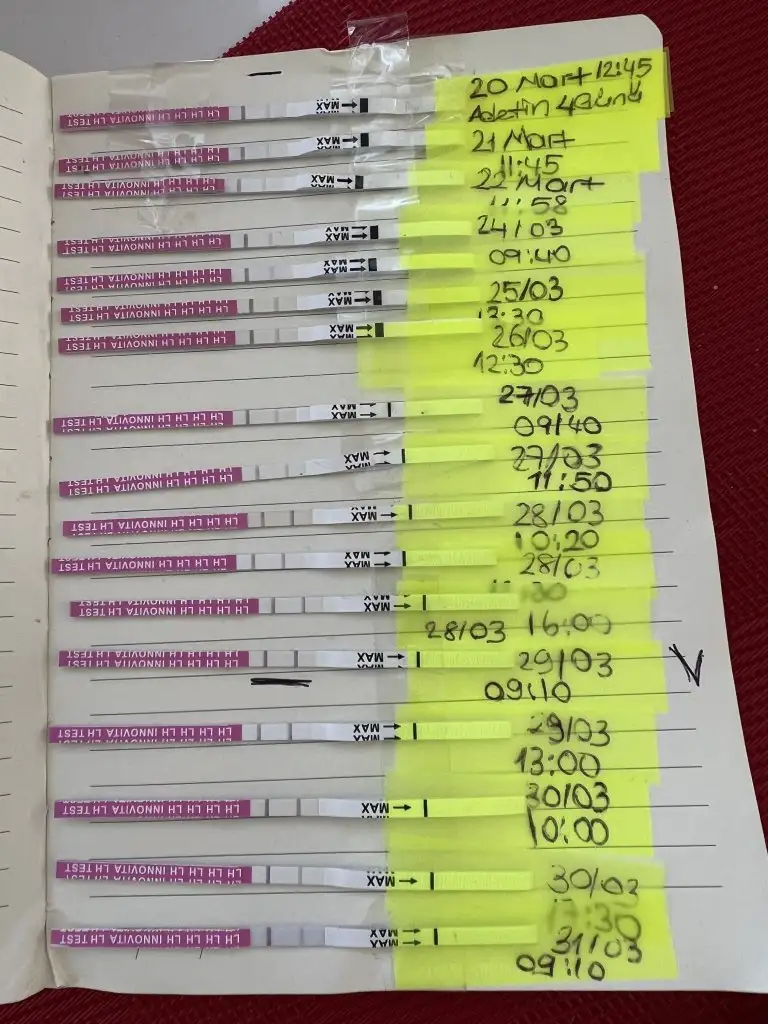 LH LH LH INNOVITA LH TEST MAX 20 Mart 12:45
Adetin 4Günü
LH LH LH INNOVITA LH TEST MAX 21 Mart
11:45
LH LH LH INNOVITA LH TEST MAX 22 Mart
11:58
LH LH LH INNOVITA LH TEST MAX 24/03
09:40
LH LH LH INNOVITA LH TEST MAX
LH LH LH INNOVITA LH TEST MAX 25/03
13:30
LH LH LH INNOVITA LH TEST MAX 26/03
12:30
LH LH LH INNOVITA LH TEST MAX 27/03
09/40
LH LH LH INNOVITA LH TEST MAX 27/03
11:50
LH LH LH INNOVITA LH TEST MAX 28/03
10:20
LH LH LH INNOVITA LH TEST MAX 28/03
LH LH LH INNOVITA LH TEST MAX
28/03 16:00
LH LH LH INNOVITA LH TEST MAX 29/03
09:10
LH LH LH INNOVITA LH TEST MAX 29/03
13:00
LH LH LH INNOVITA LH TEST MAX 30/03
10:00
LH LH LH INNOVITA LH TEST MAX 30/03
17:30
LH LH LH INNOVITA LH TEST MAX 31/03
09:10